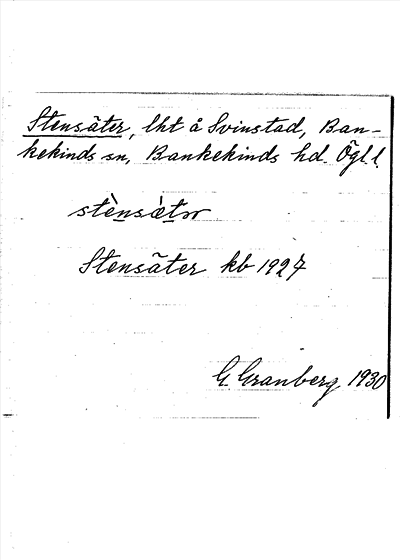 Stensäter, lht å Svinstad, Ban-
kekinds sn, Bankekinds hd. Ögl.l.
stènsæ̀tər
Stensäter kb 1927
G. Granberg 1930